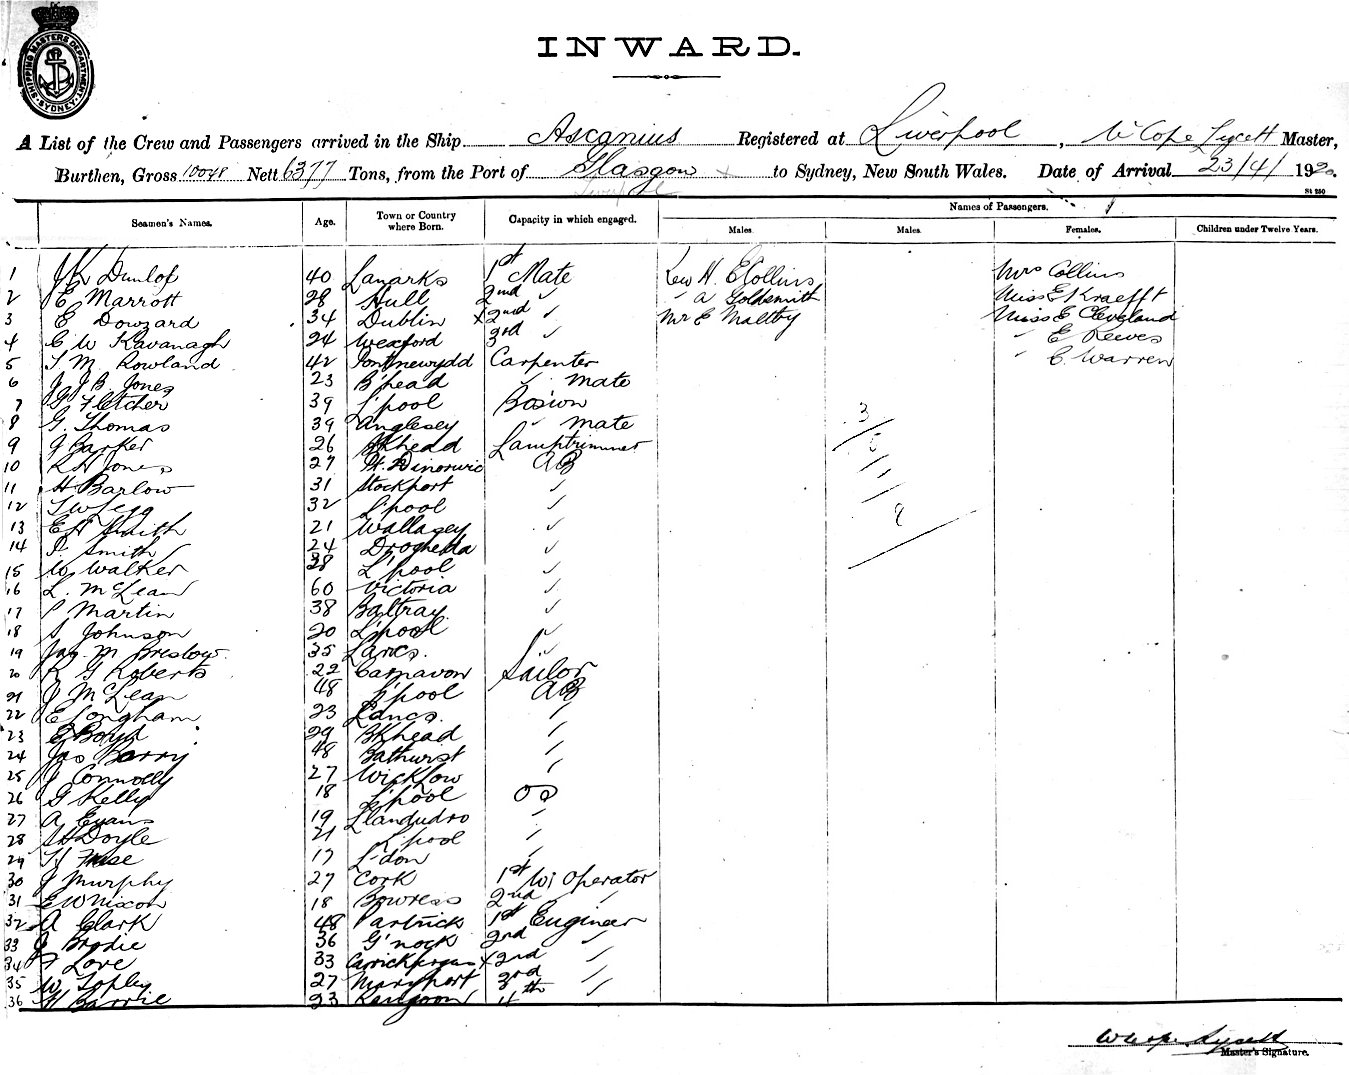 SHIPPING MASTERS DEPARTMENT
SYDNEY
INWARD.
A List of the Crew and Passengers arrived in the Ship Ascanius Registered at Liverpool, W Cope Lycett Master,
Burthen, Gross 10048 Nett 6377 Tons, from the Port of Glasgow x to Sydney, New South Wales. Date of Arrival 23/4/1920.
Liverpool
St 250
Seamen's Names. Age. Town or Country where Born. Capacity in which engaged. Names of Passengers.
Males. Males. Females. Children under Twelve Years.
1 J K Dunlop 40 Lanarks 1st Mate Rev H. E Collins Mrs Collins
2 E Marrott 28 Hull 2nd " " A Goldsmith Miss E Kraefft
3 E Dowzard 34 Dublin x 2nd " Mr E Maltby Miss E Cleveland
4 C W Kavanagh 24 Wexford 3rd " " E Reeves
5 T M Rowland 42 Pontnewydd Carpenter " C Warren
6 J J B Jones 23 B'head " mate
7 G Fletcher 39 L'pool Bosun
8 G. Thomas 39 Anglesey " mate
9 J Barker 26 Bkhead Lamptrimmer
10 R H Jones 27 Pt. Dinorwic AB
11 H Barlow 31 Stockport "
12 T W Legg 32 L'pool "
13 E H Smith 21 Wallasey "
14 P. Smith 24 Drogheda "
15 W Walker 38 L'pool "
16 L. McLean 60 Victoria "
17 P Martin 38 Baltray "
18 S Johnson 20 L'pool "
19 Jas. M Breslow 35 Lancs. "
20 R G Roberts 22 Carnavon Sailor
21 J McLean 48 L'pool AB
22 E Longham 23 Lancs. "
23 E Boyd 29 Bkhead "
24 Jas Barry 48 Bathurst "
25 J Connolly 27 Wicklow "
26 G Kelly 18 L'pool OS
27 A Evans 19 Llandudro "
28 H Doyle 21 L'pool "
29 17 L'don "
30 J Murphy 27 Cork 1st W/ Operator
31 E W Nixon 18 Bowness 2nd " "
32 A Clark 48 Partrick 1st Engineer
33 J Brodie 36 G'nock 2nd "
34 Love 33 Carrickfergus x 2nd "
35 W Topley 27 Maryport 3rd "
36 H Barrie 23 Rangoon 4th "
3
W Cope Lycett
Master's Signature.